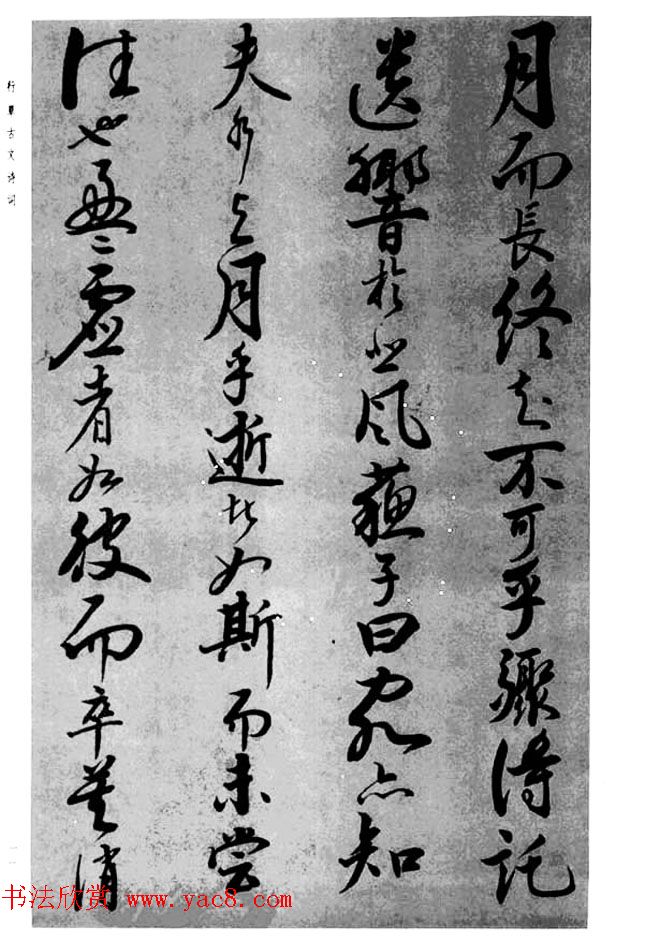 月而長終知不可乎驟得託
遺響於悲風蘇子曰客亦知
夫水与月乎逝者如斯而未嘗
往也盈虛者如彼而卒莫消
行草古文诗词
一一
书法欣赏 www.yac8.com